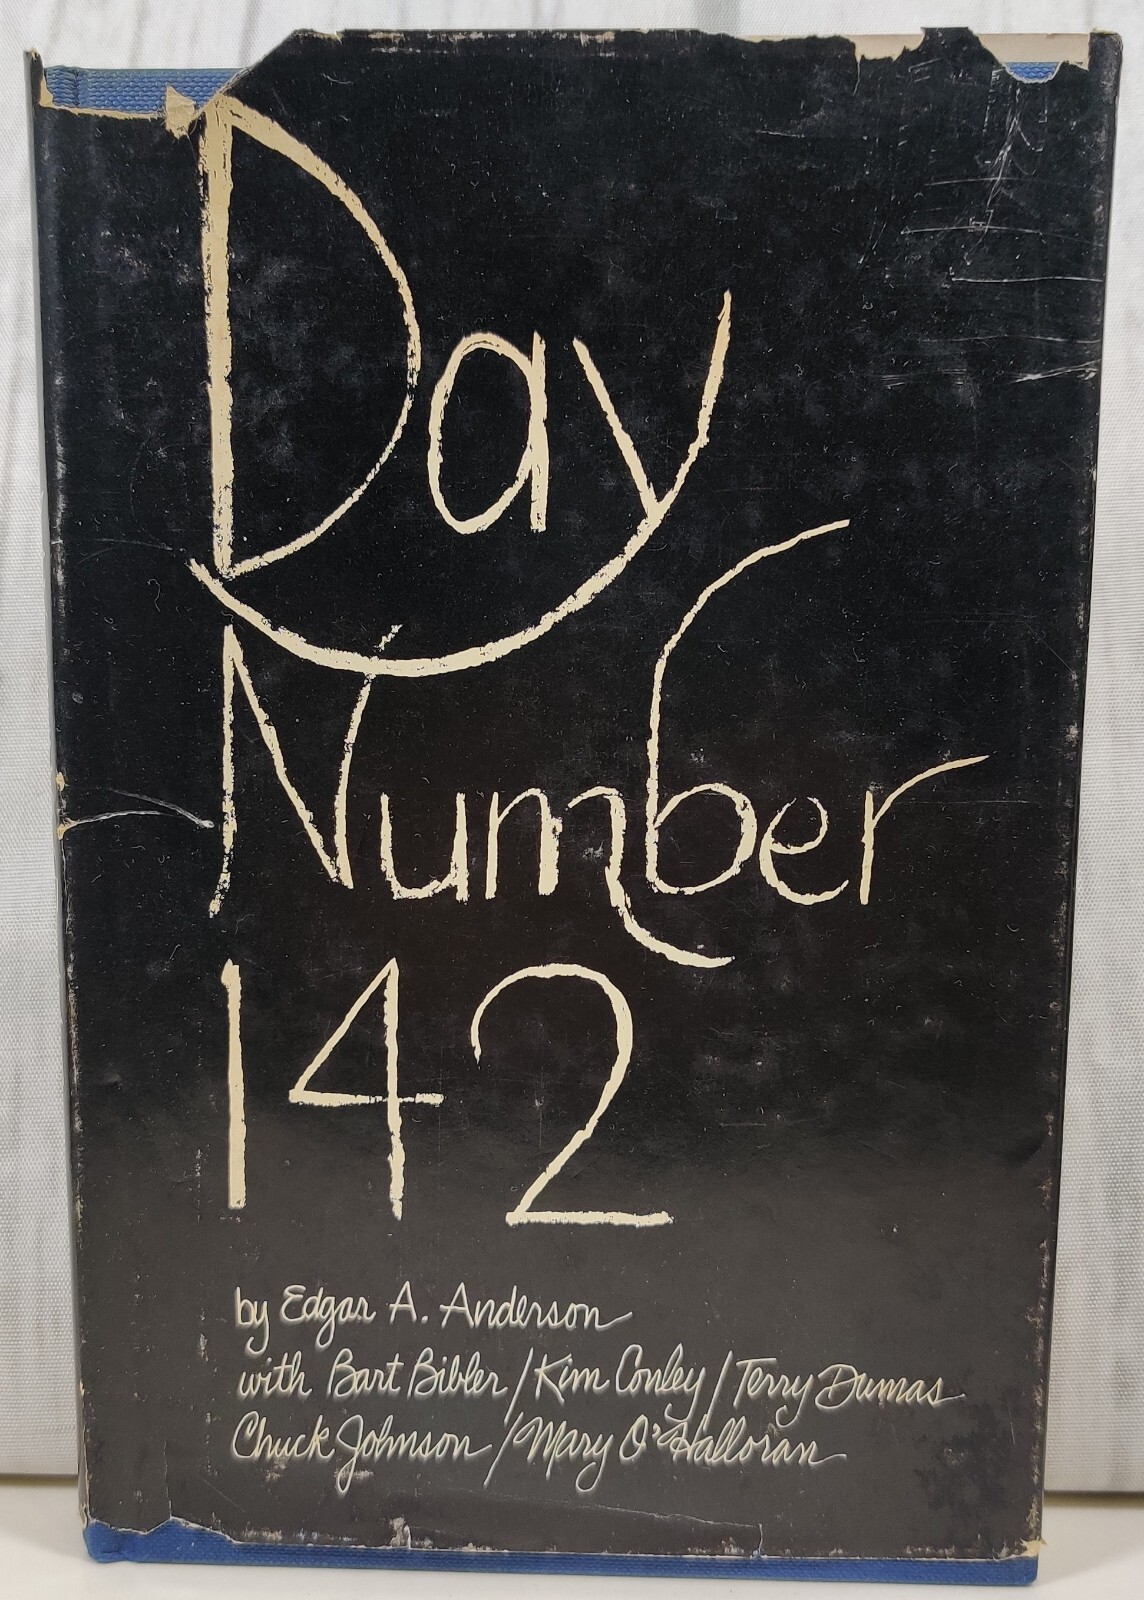 Day
Number
142
by Edgar A. Anderson
with Bart Bibler / Kim Conley / Terry Dumas
Chuck Johnson / Mary O'Halloran